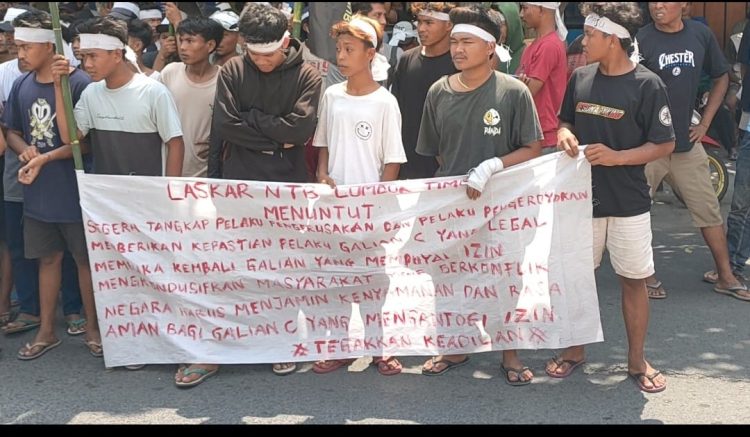 LASKAR NTB LOMBOK TIMUR
MENUNTUT
SEGERA TANGKAP PELAKU PENGERUSAKAN DAN PELAKU PENGEROYOKAN
MEMBERIKAN KEPASTIAN PELAKU GALIAN C YANG LEGAL
MEMBUKA KEMBALI GALIAN YANG MEMPUYAI IZIN
MENGKONDUSIFKAN MASYARAKAT YANG BERKONFLIK
NEGARA HARUS MENJAMIN KENYAMANAN DAN RASA
AMAN BAGI GALIAN C YANG MENGANTOGI IZIN
#TEGAKKAN KEADILAN#
CHESTER